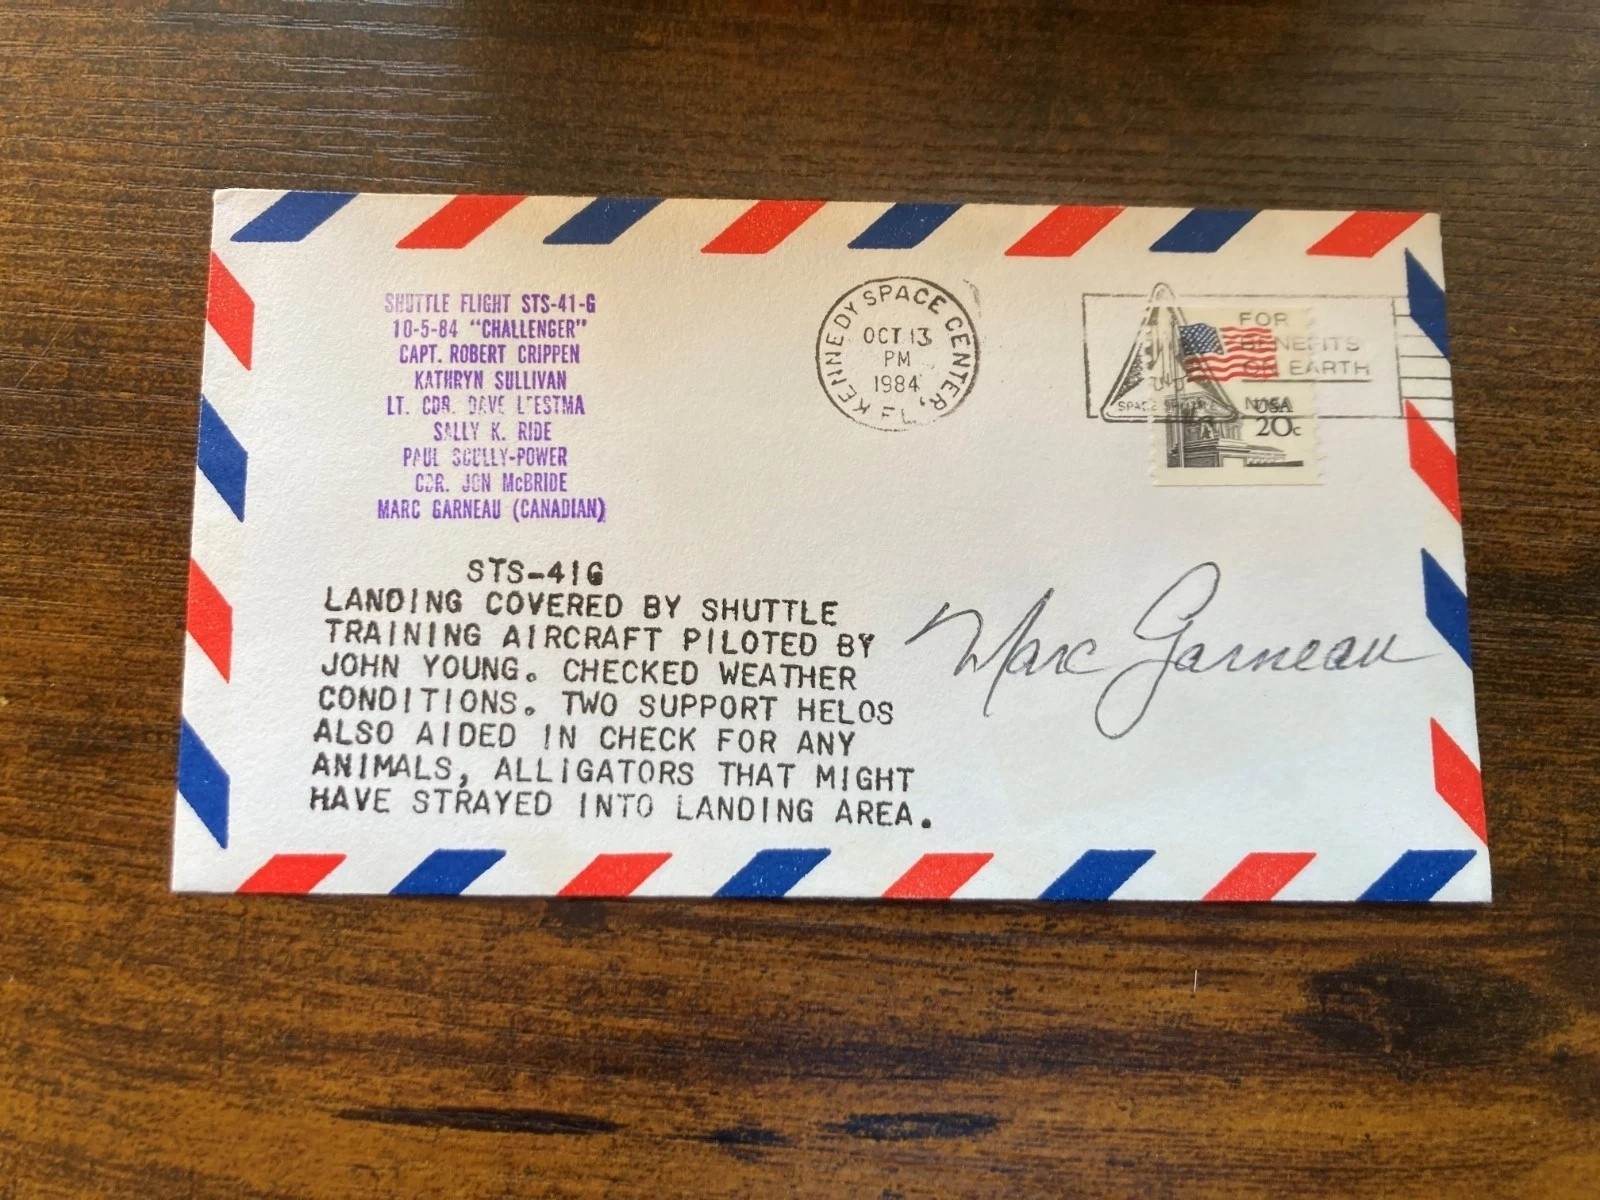 SHUTTLE FLIGHT STS-41-G
10-5-84 "CHALLENGER"
CAPT. ROBERT CRIPPEN
KATHRYN SULLIVAN
LT. CDR. DAVE LEESTMA
SALLY K. RIDE
PAUL SCULLY-POWER
CDR. JON McBRIDE
MARC GARNEAU (CANADIAN)
KENNEDY SPACE CENTER, FL
OCT 13
PM
1984
FOR
BENEFITS
ON EARTH
SPACE SHUTTLE
NASA
USA
20c
STS-41G
LANDING COVERED BY SHUTTLE
TRAINING AIRCRAFT PILOTED BY
JOHN YOUNG. CHECKED WEATHER
CONDITIONS. TWO SUPPORT HELOS
ALSO AIDED IN CHECK FOR ANY
ANIMALS, ALLIGATORS THAT MIGHT
HAVE STRAYED INTO LANDING AREA.
Marc Garneau